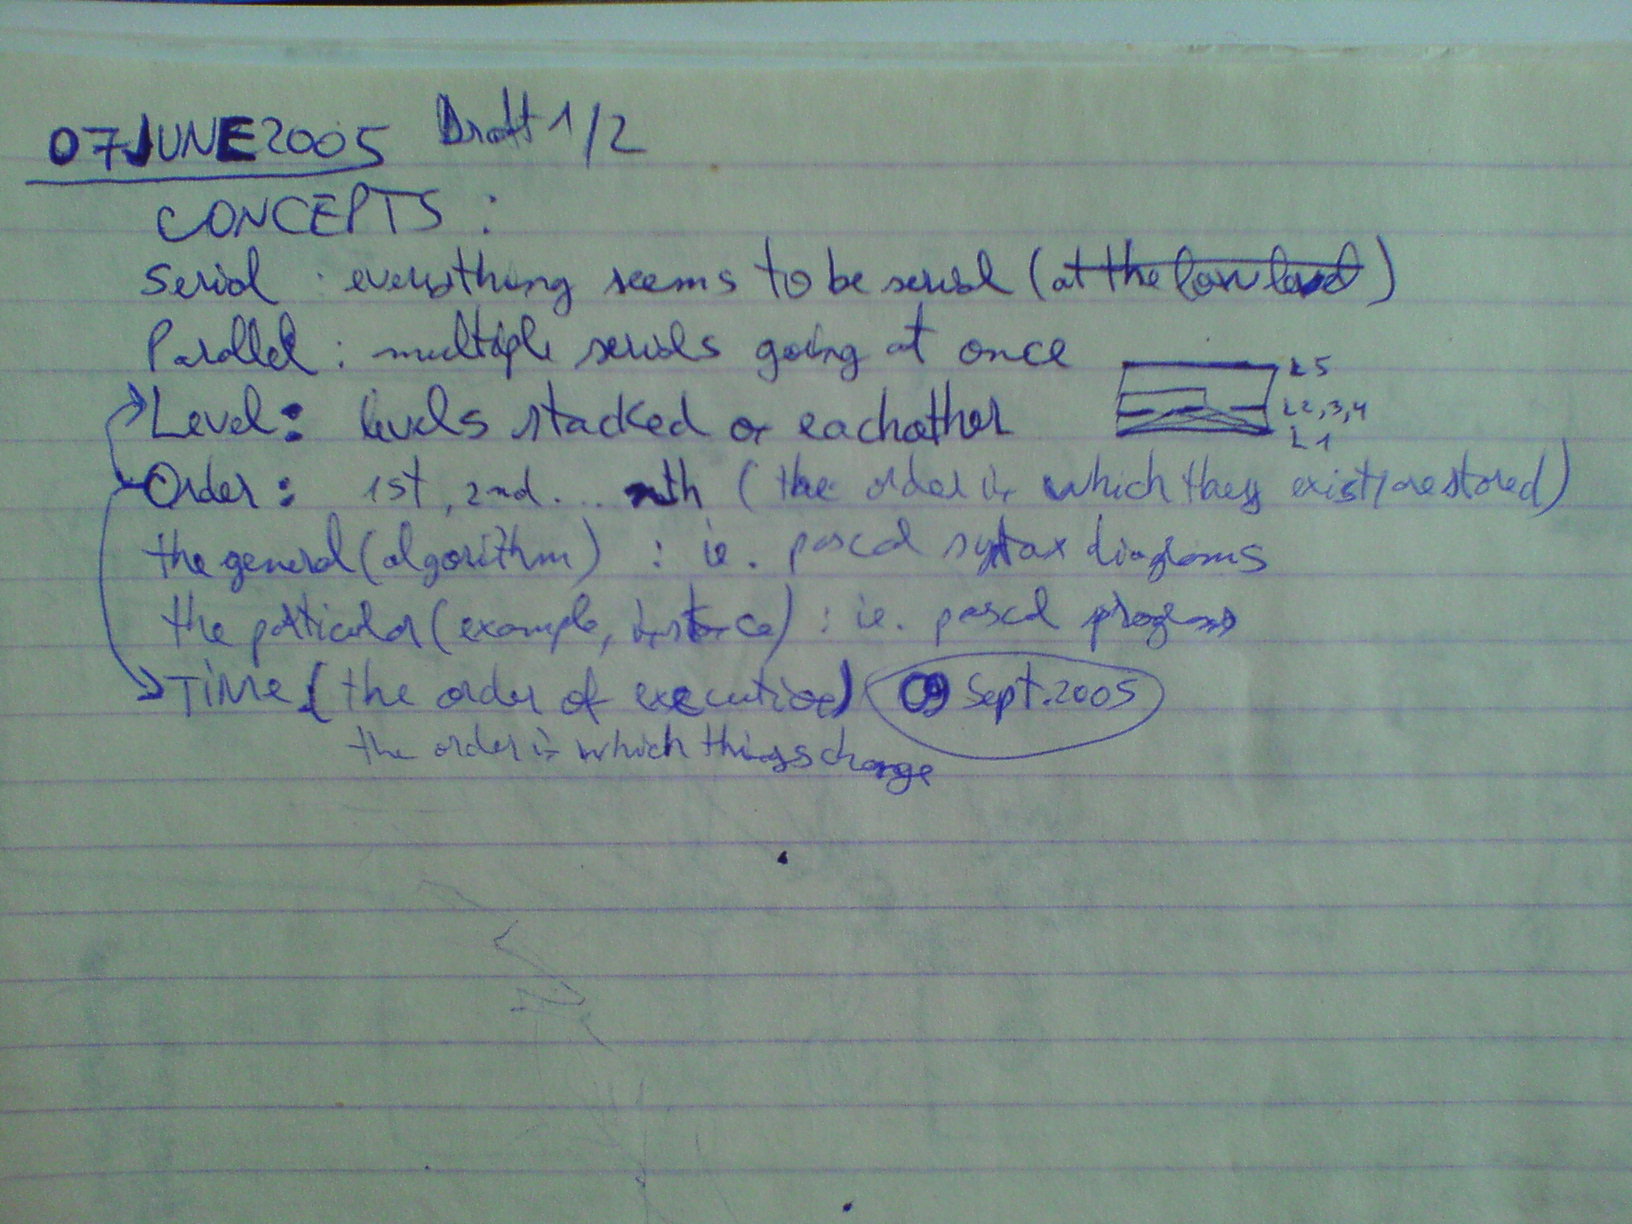 07 JUNE 2005 Draft 1/2
CONCEPTS :
Serial : everything seems to be serial (at the low level)
Parallel : multiple serials going at once
L5
Level: levels stacked on eachother
L2,3,4
L1
Order: 1st, 2nd... nth (the order in which they exist/are stored)
the general (algorithm) : ie. pascal syntax diagrams
the particular (example, instance) : ie. pascal programs
TIME (the order of execution) 09 Sept. 2005
the order in which things change